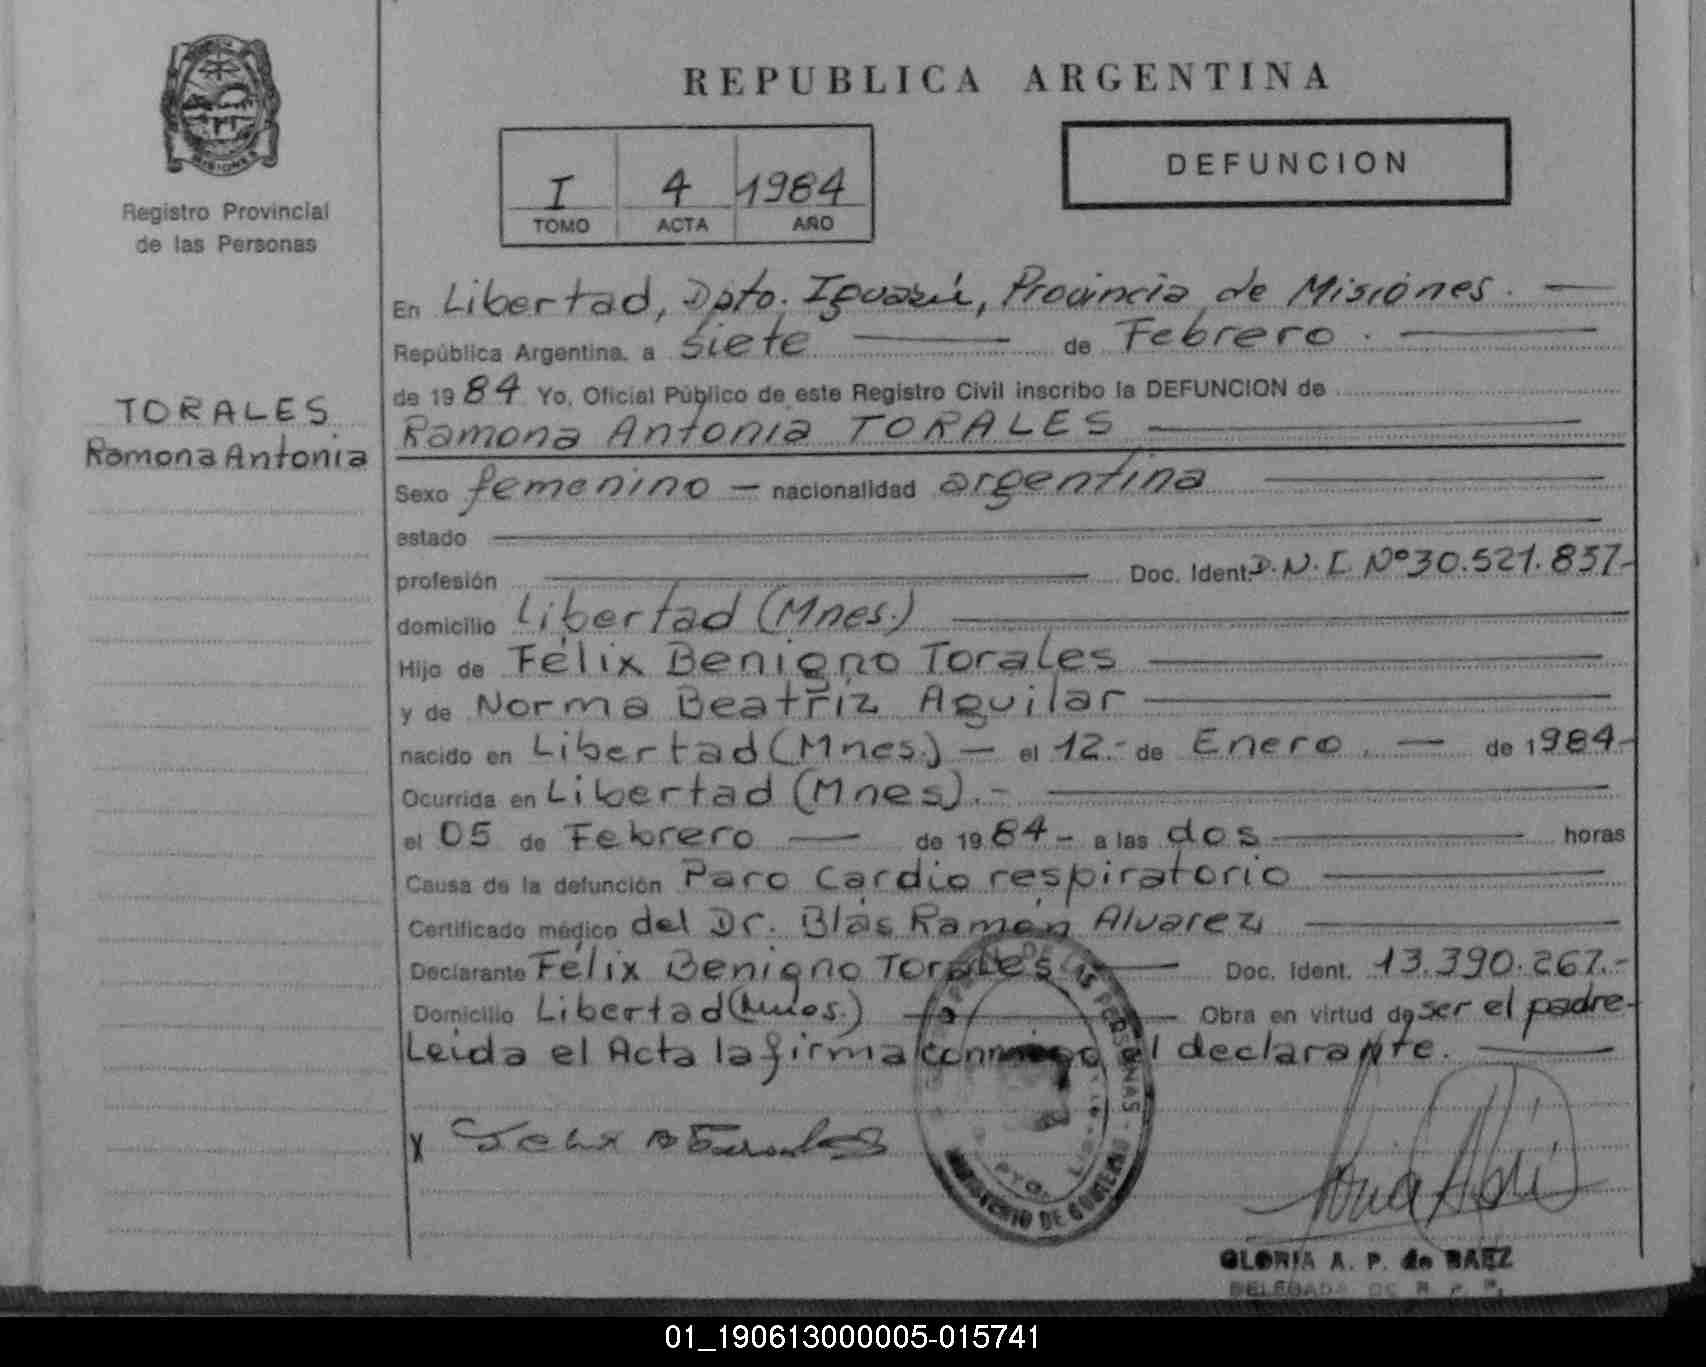 MISIONES
Registro Provincial
de las Personas
TORALES
Ramona Antonia
REPUBLICA ARGENTINA
I 4 1984
TOMO ACTA AÑO
DEFUNCION
En Libertad, Dpto. Iguazú, Provincia de Misiones.
República Argentina, a siete de Febrero.
de 1984 Yo, Oficial Público de este Registro Civil inscribo la DEFUNCION de
Ramona Antonia TORALES
Sexo femenino - nacionalidad argentina
estado
profesión Doc. Ident. D.N.I. Nº 30.521.837.-
domicilio Libertad (Mnes.)
Hijo de Félix Benigno Torales
y de Norma Beatríz Aguilar
nacido en Libertad (Mnes.) - el 12.- de Enero. - de 1984.-
Ocurrida en Libertad (Mnes).-
el 05 de Febrero de 1984 - a las dos horas
Causa de la defunción Paro Cardio respiratorio
Certificado médico del Dr. Blás Ramón Alvarez
Declarante Félix Benigno Torales Doc. Ident. 13.390.267.-
Domicilio Libertad (Mnes.) Obra en virtud de ser el padre-
Leída el Acta la firma conmigo el declarante.
X
DE LAS PERSONAS
MINISTERIO DE GOBIERNO
GLORIA A. P. de BAEZ
DELEGADA DE R. P. P.
01_190613000005-015741